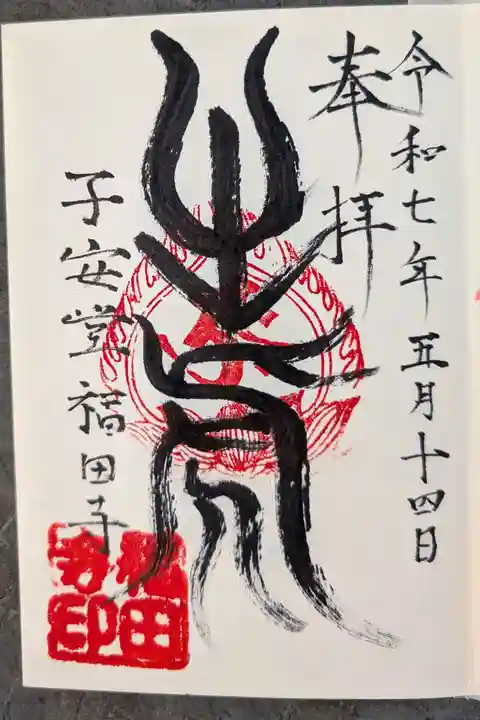 令和七年五月十四日
奉拝
子安堂福田寺
福田
寺印